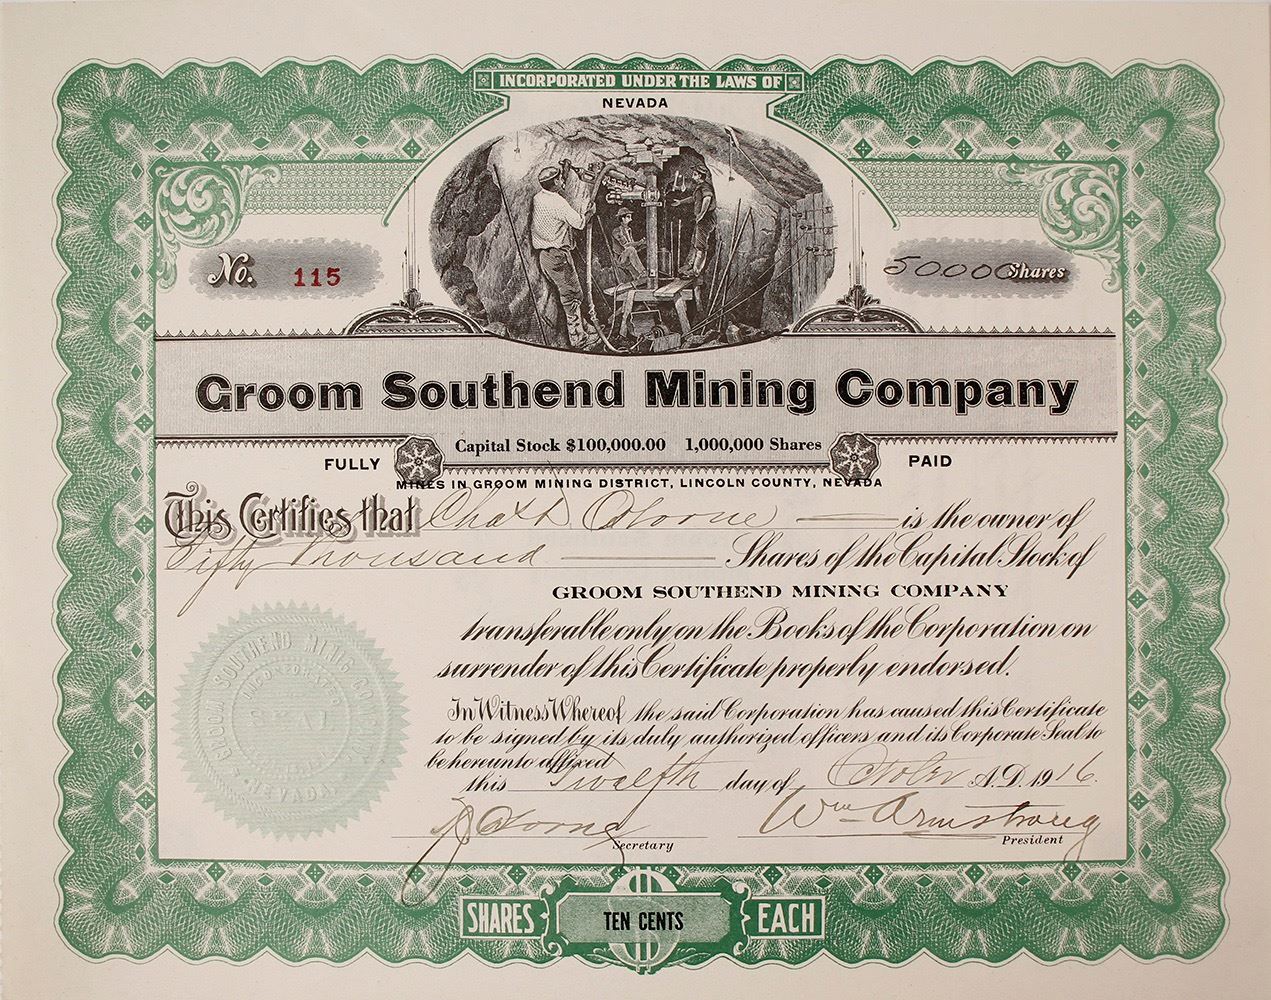 INCORPORATED UNDER THE LAWS OF
NEVADA
No. 115
50000 Shares
Groom Southend Mining Company
Capital Stock $100,000.00 1,000,000 Shares
FULLY PAID
MINES IN GROOM MINING DISTRICT, LINCOLN COUNTY, NEVADA
This Certifies that is the owner of
Fifty Thousand Shares of the Capital Stock of
GROOM SOUTHEND MINING COMPANY
transferable only on the Books of the Corporation on
surrender of this Certificate properly endorsed.
In Witness Whereof the said Corporation has caused this Certificate
to be signed by its duly authorized officers and its Corporate Seal to
be hereunto affixed
this Twelfth day of October A.D. 1916.
Wm Armstrong
Secretary President
GROOM SOUTHEND MINING CO.
INCORPORATED
SEAL
NEVADA
SHARES TEN CENTS EACH